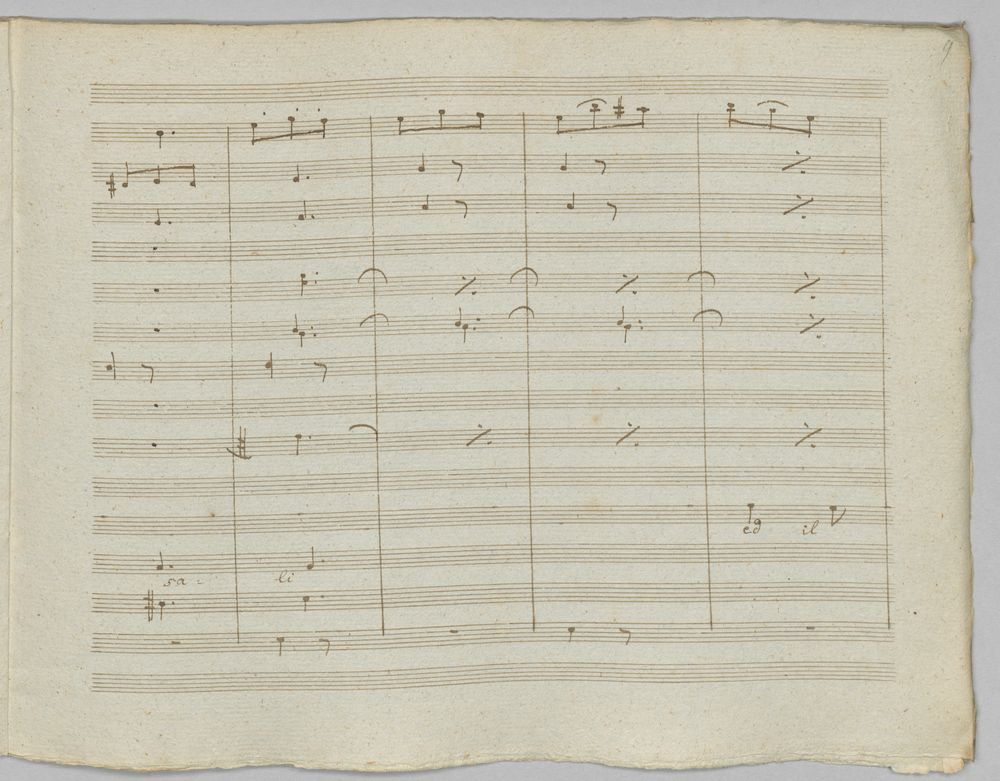 9
ed il
sa- li